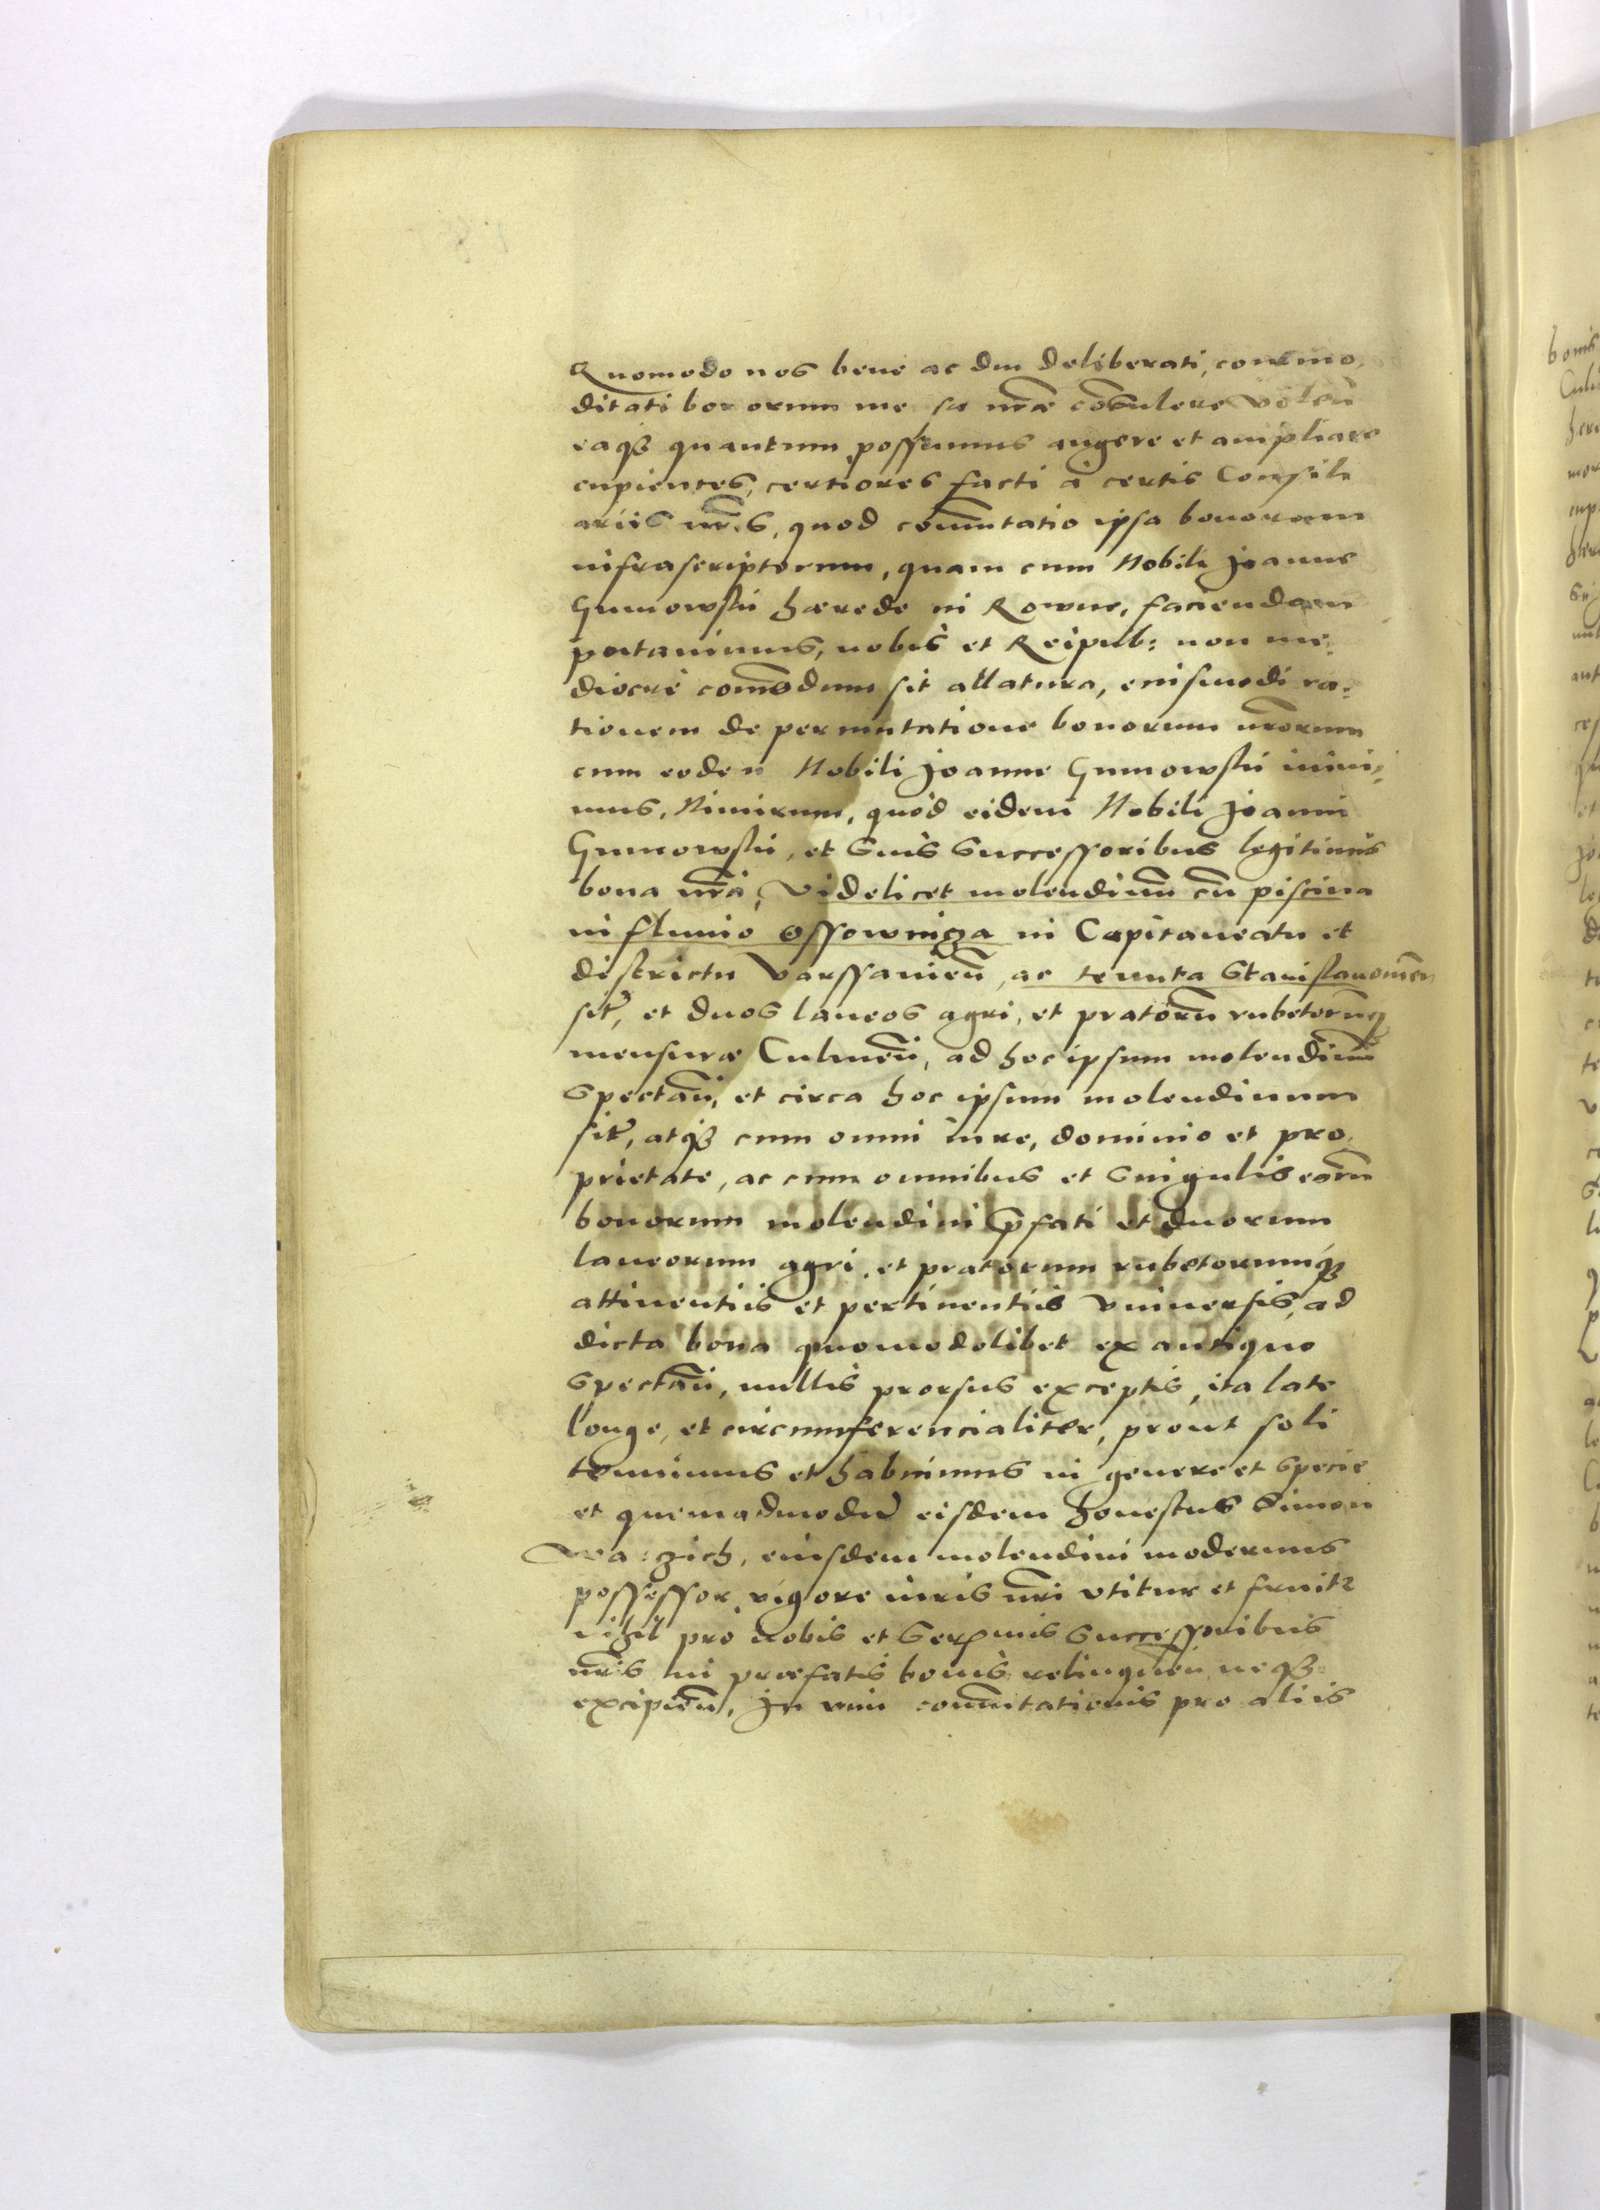 Quomodo nos bene ac diu deliberati, commo,
ditati bonorum me sæ nr̃æ cõsulere volen̄
eaqȝ quantum possumus augere et ampliare
cupientes, certiores facti à certis Consili
ariis nr̃is, quod com̃utatio ipsa bonorum
infrascriptorum, quam cum Nobili Joanne
Gumowskii hærede in Rowne, faciendam
putauimus, nobis et Reipub: non me:
diocre com̃odum sit allatura, eiusmodi ra:
tionem de permutatione bonorum nr̃orum
cum eodem Nobili Joanne Gumowskii iniui:
mus, Nimirum, quòd eidem Nobili Joanni
Gumowskii, et suis successoribus legitimis
bona nr̃a, videlicet molendinũ cũ piscina
in fluuio Ossownicza in Capitaneatu et
districtu Varssauien̄, ac tenuta Stanislauowien
sit̃, et duos laneos agri, et pratorũ rubetorũqȝ
mensuræ Culmen̄, ad hoc ipsum molendinũ
spectan̄, et circa hoc ipsum molendinum
sit̃, atqȝ cum omni iure, dominio et pro,
prietate, ac cum omnibus et singulis eorũ
bonorum molendini p̄fati et duorum
laneorum agri, et pratorum rubetorumqȝ
attinentiis et pertinentiis vniuersis, ad
dicta bona quomodolibet ex antiquo
spectan̄, nullis prorsus exceptis, ita late
longe, et circumferencialiter, prout soli
tenuimus et habuimus in genere et specie
et quemadmodũ eisdem honestus Simon
eiusdem molendini modernus
possessor, vigore iuris nr̃i vtitur et fruitr
nihil pro nobis et Serenis successoribus
nr̃is in præfatis bonis relinquen̄ neqȝ
excipien̄, In vim com̃utationis pro aliis